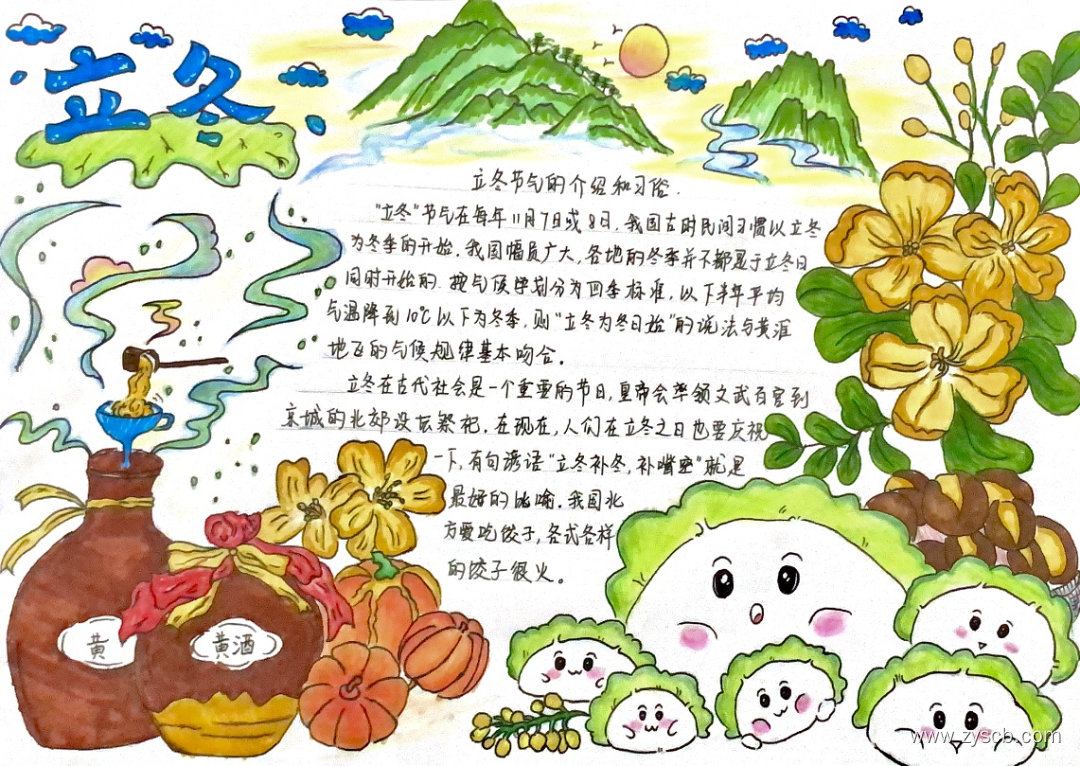 立冬
立冬节气的介绍和习俗.
"立冬"节气在每年11月7日或8日,我国古时民间习惯以立冬
为冬季的开始,我国幅员广大,各地的冬季并不都是于立冬日
同时开始的.按气候学划分为四季标准,以下半年平均
气温降到10℃以下为冬季,则"立冬为冬日始"的说法与黄淮
地区的气候规律基本吻合。
立冬在古代社会是一个重要的节日,皇帝会率领文武百官到
京城的北郊设坛祭祀.在现在,人们在立冬之日也要庆祝
一下,有句谚语"立冬补冬,补嘴空"就是
最好的比喻.我国北
方要吃饺子,各式各样
的饺子很火。
黄
黄酒
www.zyscb.com